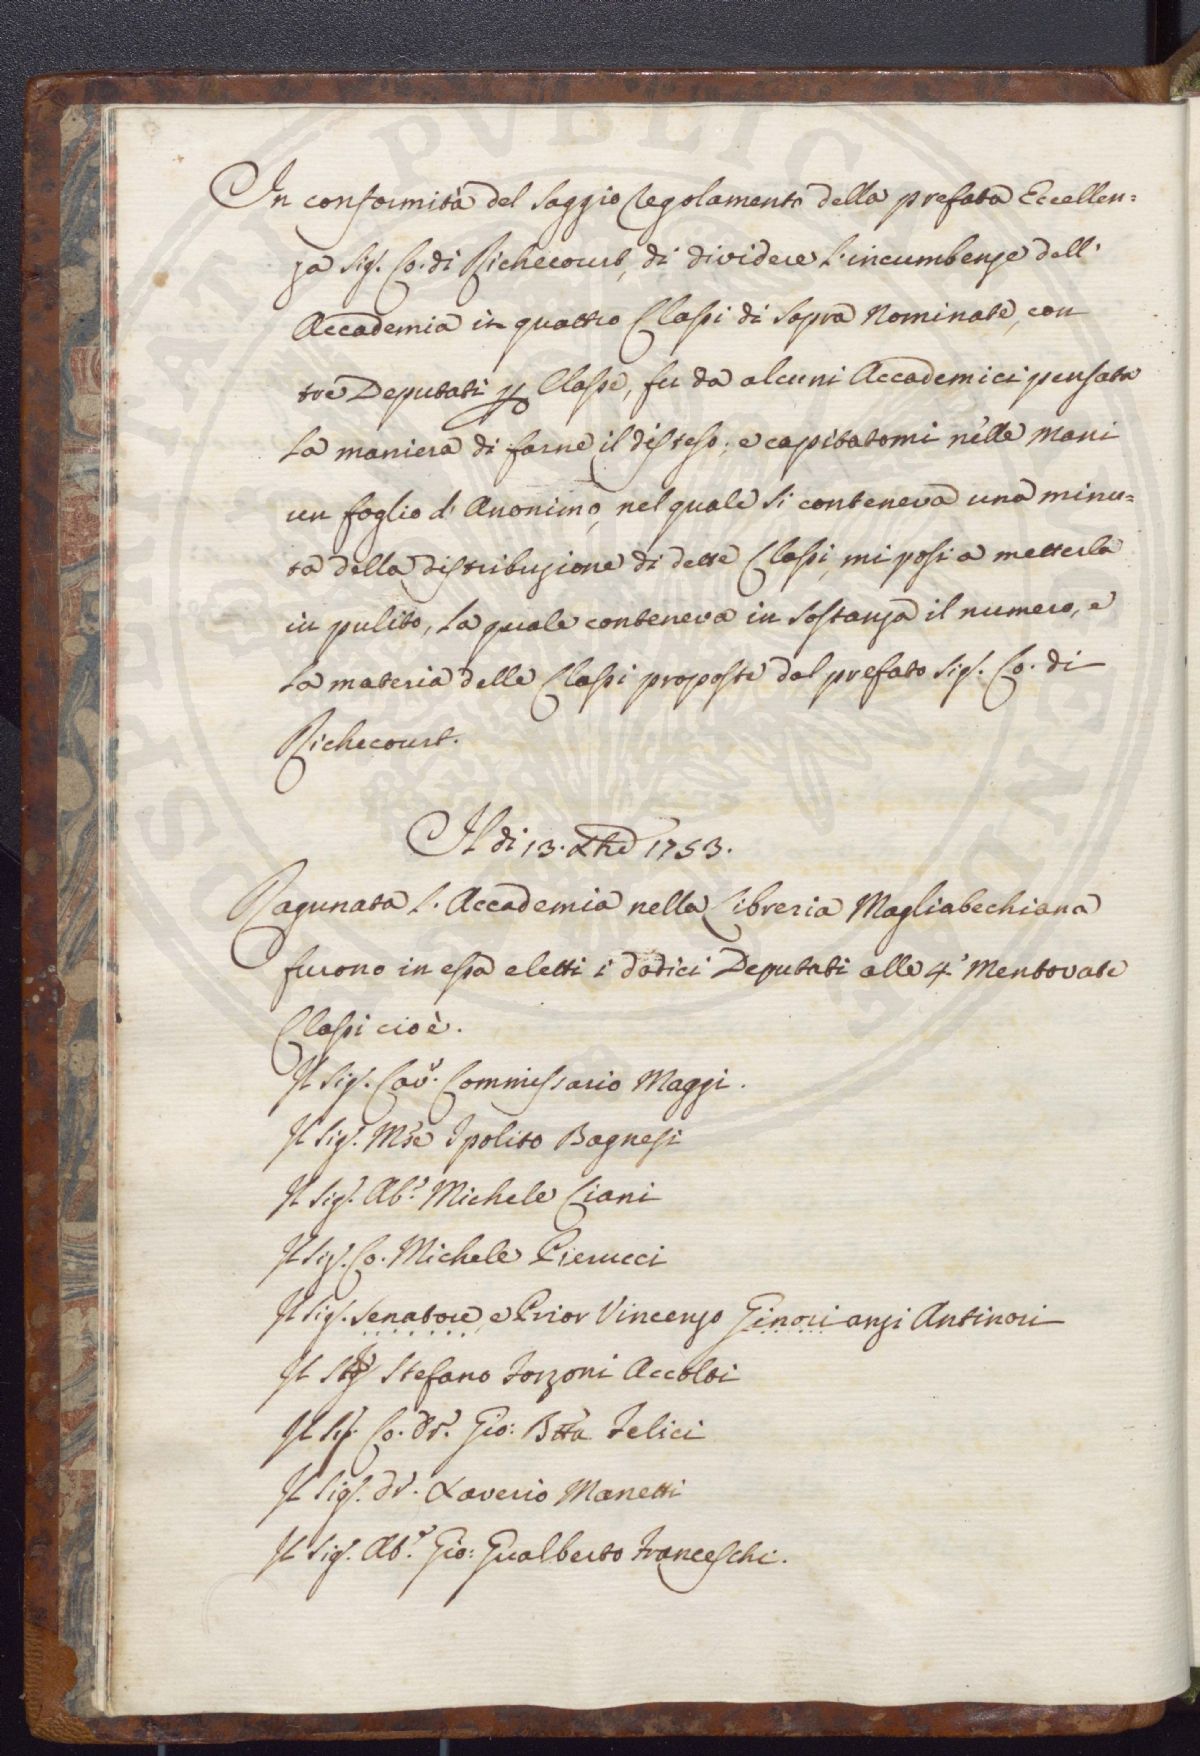 In conformità del Saggio Regolamento della prefata Eccellen=
za Sig. Co. di Richecourt, di dividere l'incumbenze dell'
Accademia in quattro Classi di Sopra Nominate, con
tre Deputati p Classe, fu da alcuni Accademici pensata
la maniera di farne il disteso; e capitatomi nelle mani
un foglio d'Anonimo, nel quale si conteneva una minu=
ta della distribuzione di dette Classi, mi posi a metterla
in pulito, la quale conteneva in sostanza il numero, e
la materia delle Classi proposte dal prefato Sig. Co. di
Richecourt.
Il di 13. Xbre 1753.
Ragunata l'Accademia nella Libreria Magliabechiana
furono in essa eletti i dodici Deputati alle 4 Mentovate
Classi cioè.
Il Sig. Cav. Commissario Maggi.
Il Sig. Mse Ipolito Bagnesi
Il Sig. Ab. Michele Ciani
Il Sig. Co. Michele Pierucci
Il Sig. Senatore, e Prior Vincenzo Ginori anzi Antinori
Il Sig Stefano Lorzoni Accolti
Il Sig. Co. Dr. Gio: Btta Felici
Il Sig. Dr. Xaverio Manetti
Il Sig. Ab. Gio: Gualberto Franceschi.